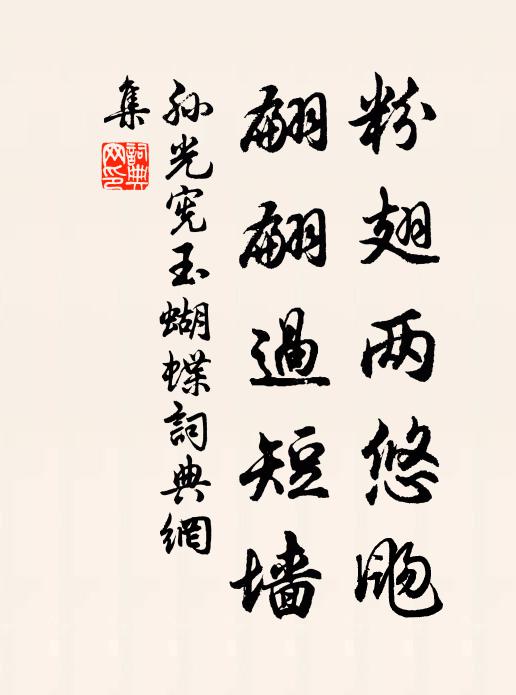 粉翅两悠飏
翩翩過短墙
孙光宪玉蝴蝶詞典網
集
詞典網印